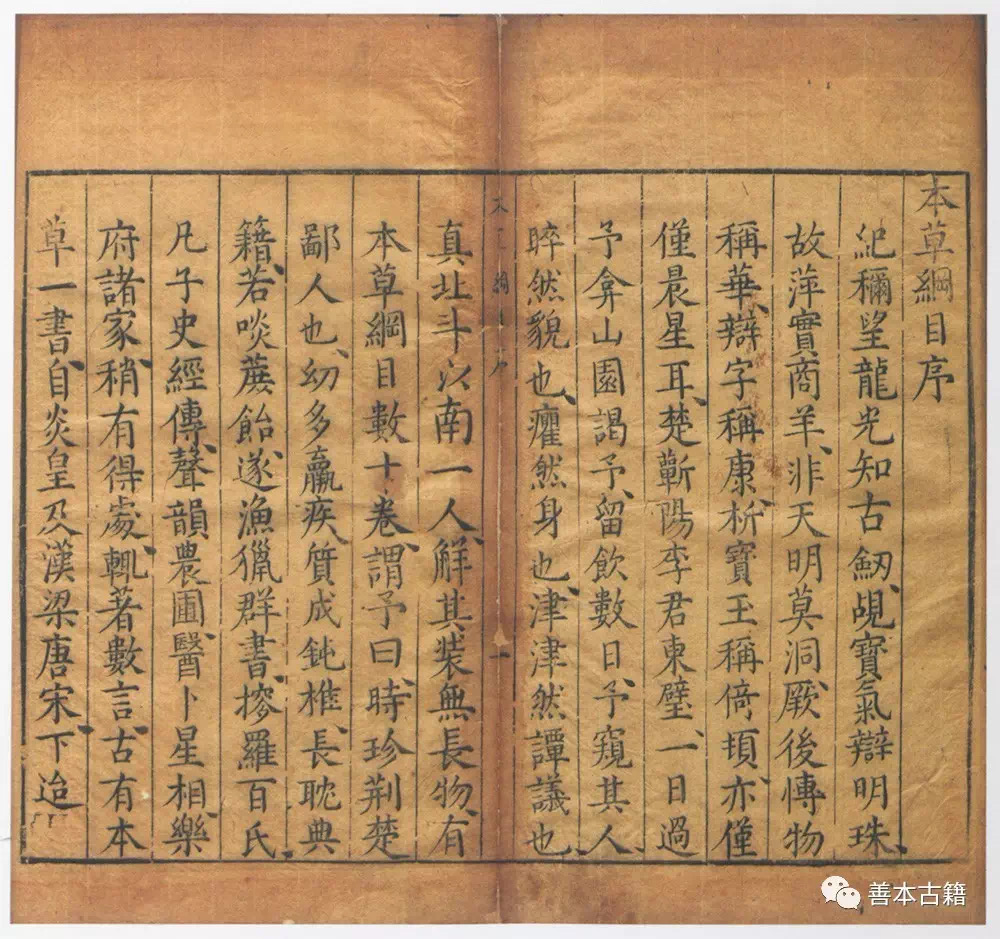 本草綱目序
紀穪望龍光知古劒、覘寶氣辯明珠、
故萍實商羊、非天明莫洞、厥後愽物
稱華、辯字稱康、析寶玉稱倚頓、亦僅
僅晨星耳、楚蘄陽李君東璧、一日過
予弇山園謁予、留飲數日、予窺其人、
睟然貌也、癯然身也、津津然譚議也、
真北斗以南一人、解其装無長物、有
本草綱目數十卷、謂予曰、時珍荆楚
鄙人也、幼多羸疾、質成鈍椎、長耽典
籍、若啖蔗飴、遂漁獵群書、搜羅百氏、
凡子史經傳、聲韻農圃、醫卜星相、樂
府諸家、稍有得處、輙著數言、古有本
草一書、自炎皇及漢梁唐宋、下迨
善本古籍